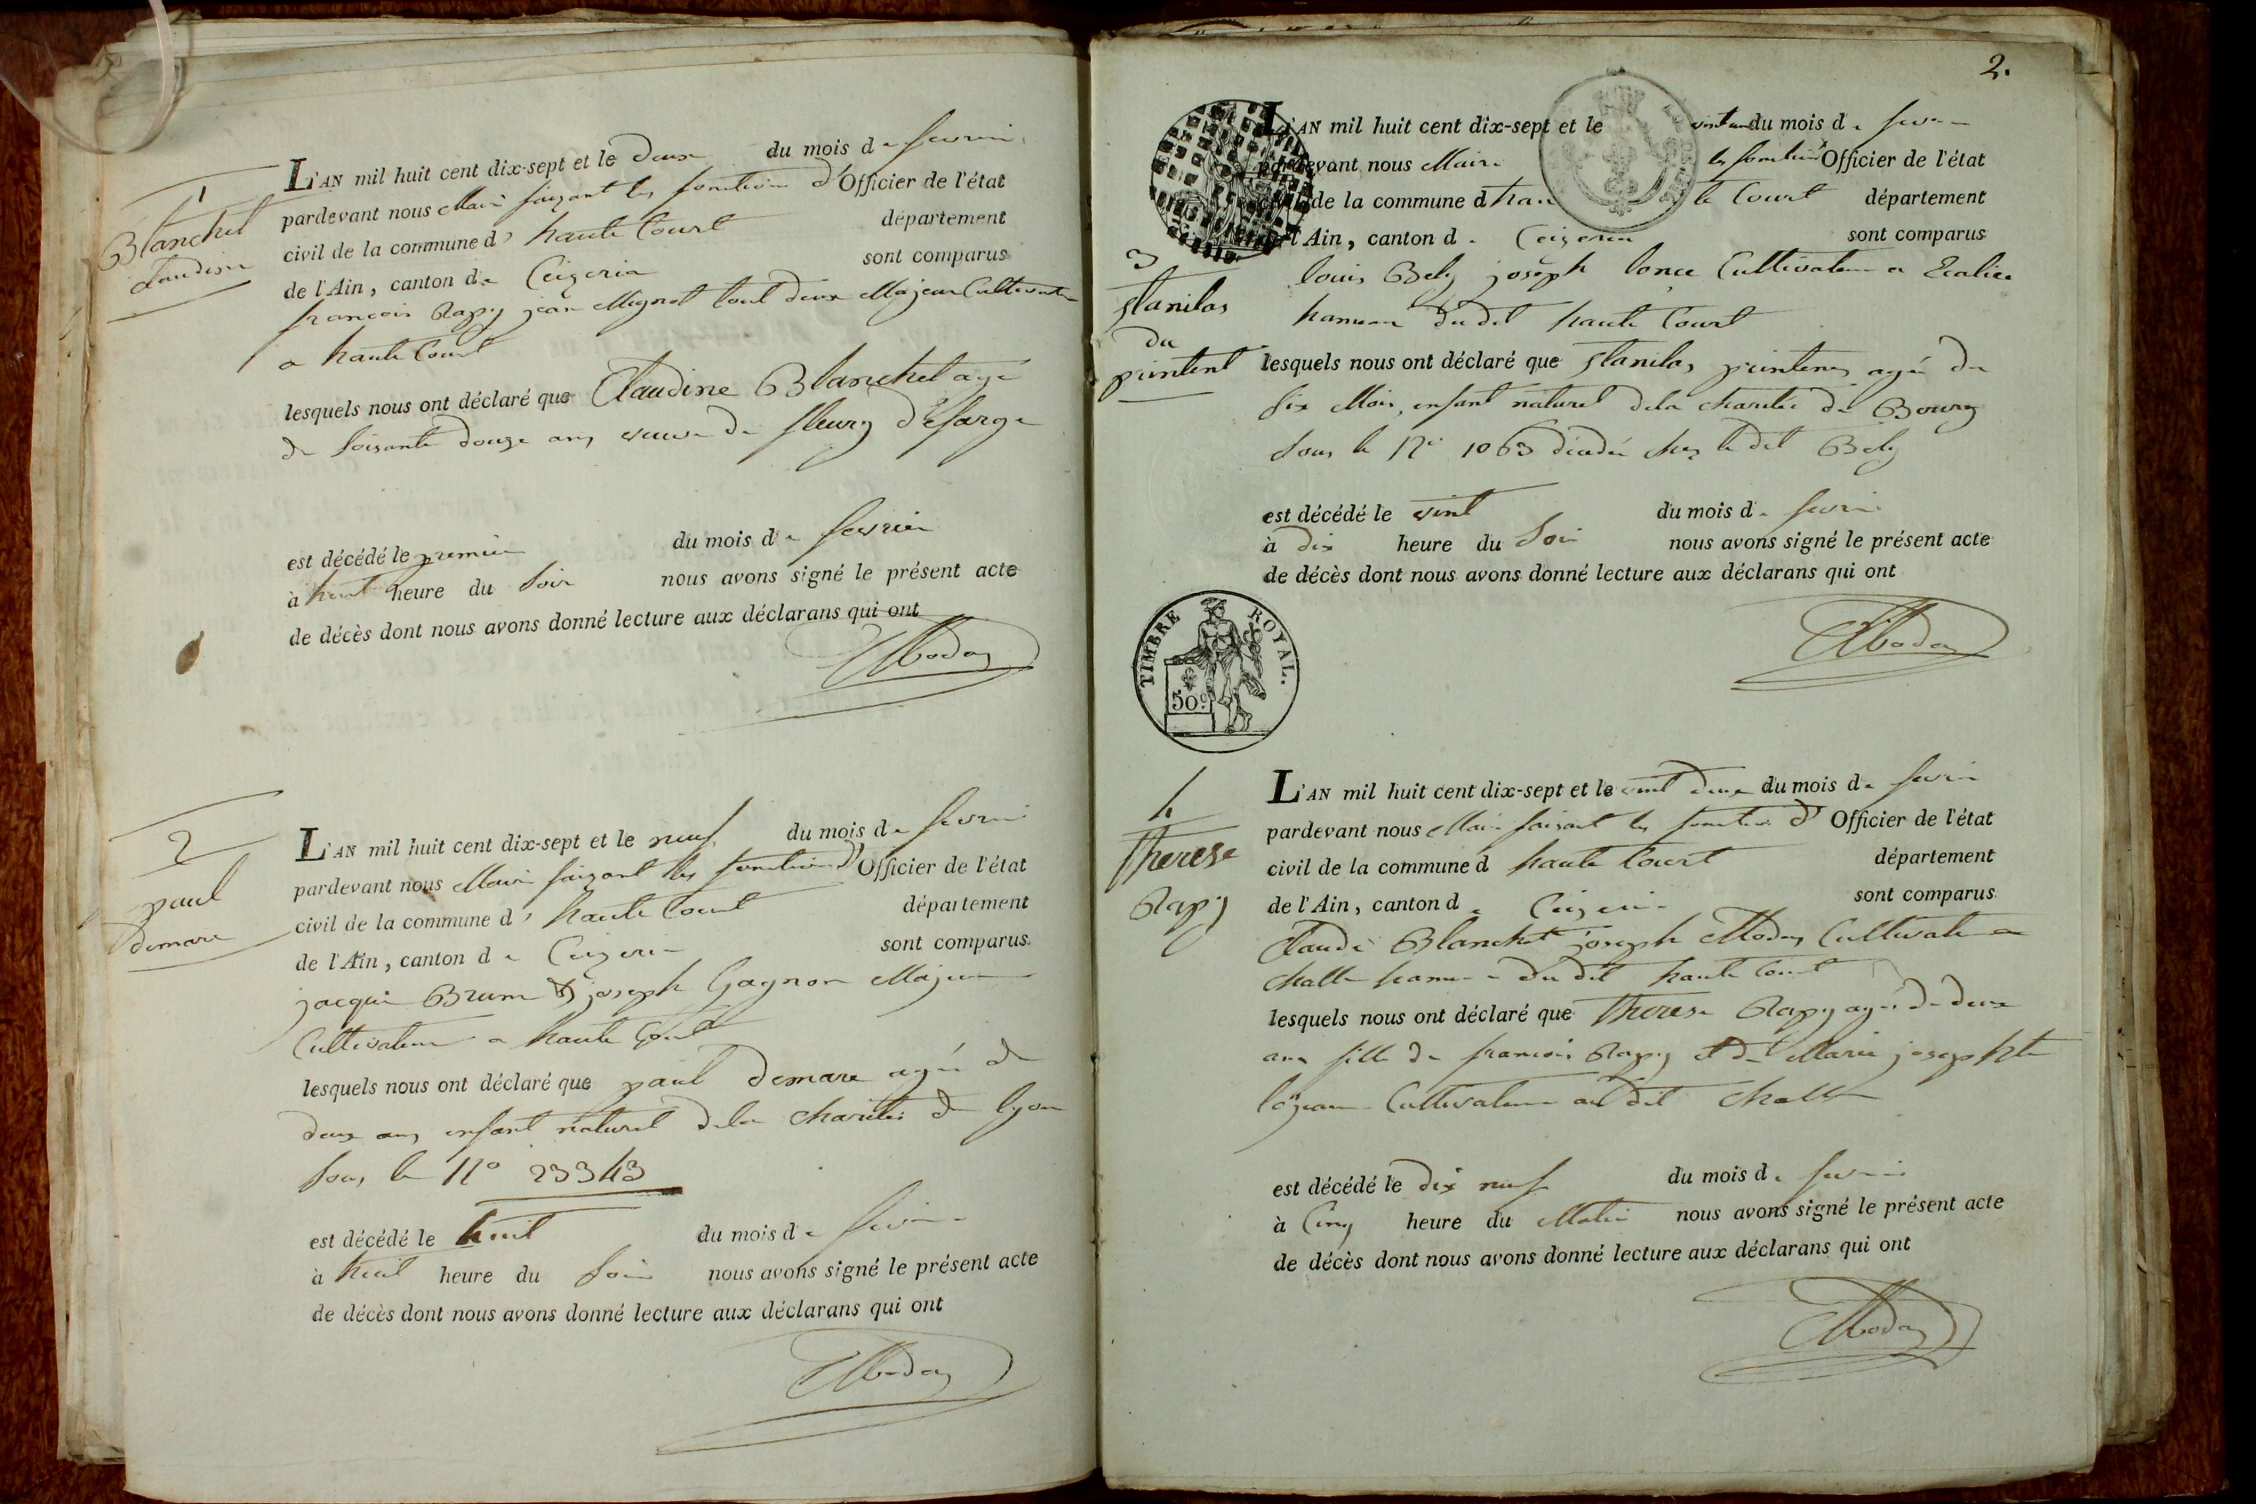 1
Blanchet
Claudine
L'AN mil huit cent dix-sept et le deux du mois de fevrier
pardevant nous Maire faisant les fonctions d'Officier de l'état
civil de la commune d' haute Court département
de l'Ain, canton de Ceizeria sont comparus
francois Rapy jean Mignot tout deux Majeur Cultivateur
a haute Court
lesquels nous ont déclaré que Claudine Blanchet agé
de soisante douze ans veuve de fleury
est décédé le premier du mois de fevrier
à huit heure du soir nous avons signé le présent acte
de décès dont nous avons donné lecture aux déclarans qui ont
2
paul
demare
L'AN mil huit cent dix-sept et le neuf du mois de fevrier
pardevant nous Maire faisant les fonction d'Officier de l'état
civil de la commune d' haute Court département
de l'Ain, canton de Ceizeria sont comparus
jacque Brum joseph Gagnon Majeur
Cultivateur a haute Court
lesquels nous ont déclaré que paul demare agé de
deux ans enfant naturel dela charité de lyon
sous le N° 23343
est décédé le huit du mois de fevrier
à huit heure du soir nous avons signé le présent acte
de décès dont nous avons donné lecture aux déclarans qui ont
2.
L'AN mil huit cent dix-sept et le vint un du mois de fevrier
pardevant nous Maire les fonction d'Officier de l'état
de la commune d te Court département
l'Ain, canton de Ceizeria sont comparus
3
Stanilas
du
printent
louis Bely joseph Cultivateur a
hameau du dit haute Court
lesquels nous ont déclaré que Stanilas printems agé de
six Mois, enfant naturel dela charité de Bourg
sous le N° 1063 décédé chez le dit Bely
est décédé le vint du mois de fevrier
à dix heure du soir nous avons signé le présent acte
de décès dont nous avons donné lecture aux déclarans qui ont
TIMBRE ROYAL.
50c
4
Therese
Rapy
L'AN mil huit cent dix-sept et le vint deux du mois de fevrier
pardevant nous Maire faisant les fonction d'Officier de l'état
civil de la commune d haute Court département
de l'Ain, canton de Ceizeria sont comparus
Claude Blanchet joseph Moday Cultivateur a
challe hameau du dit haute Court
lesquels nous ont déclaré que Therese Rapy agé de deux
ans fille de francois Rapy et de Marie josephte
Cultivateur au dit challe
est décédé le dix neuf du mois de fevrier
à Cinq heure du Matin nous avons signé le présent acte
de décès dont nous avons donné lecture aux déclarans qui ont